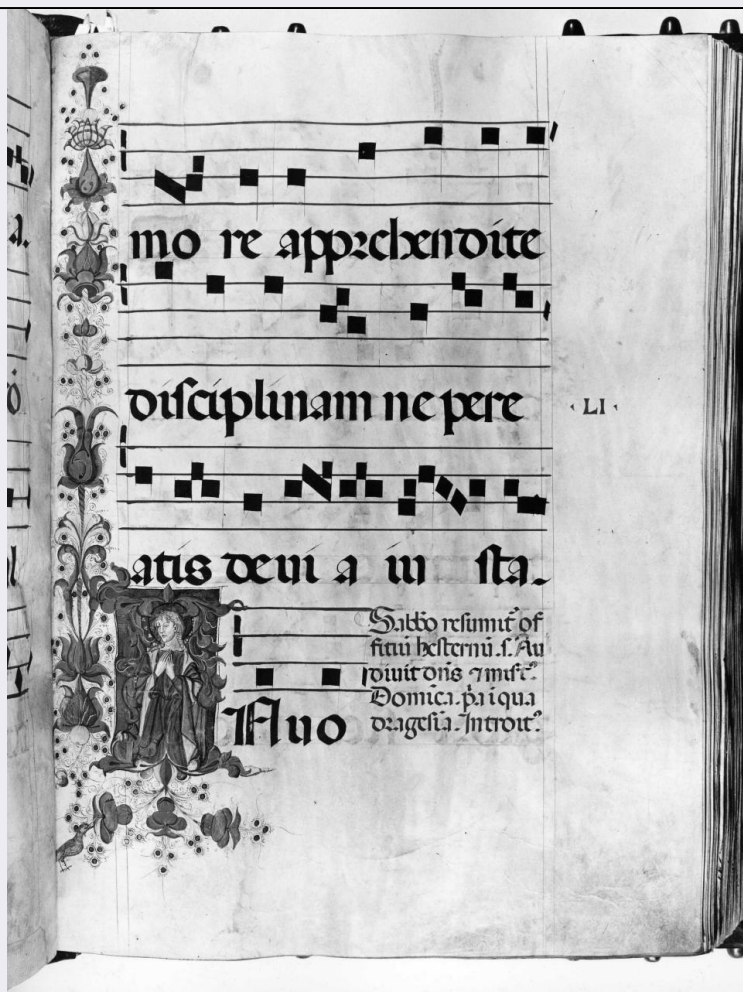 mo re apprehendite
disciplinam ne pere
LI
atis de vi a iu sta.
Sabbo resumit of
fitiu hesternu. s. Au
divit dns 7 misr.
Domica. pa i qua
dragesia. Introit.
INuo